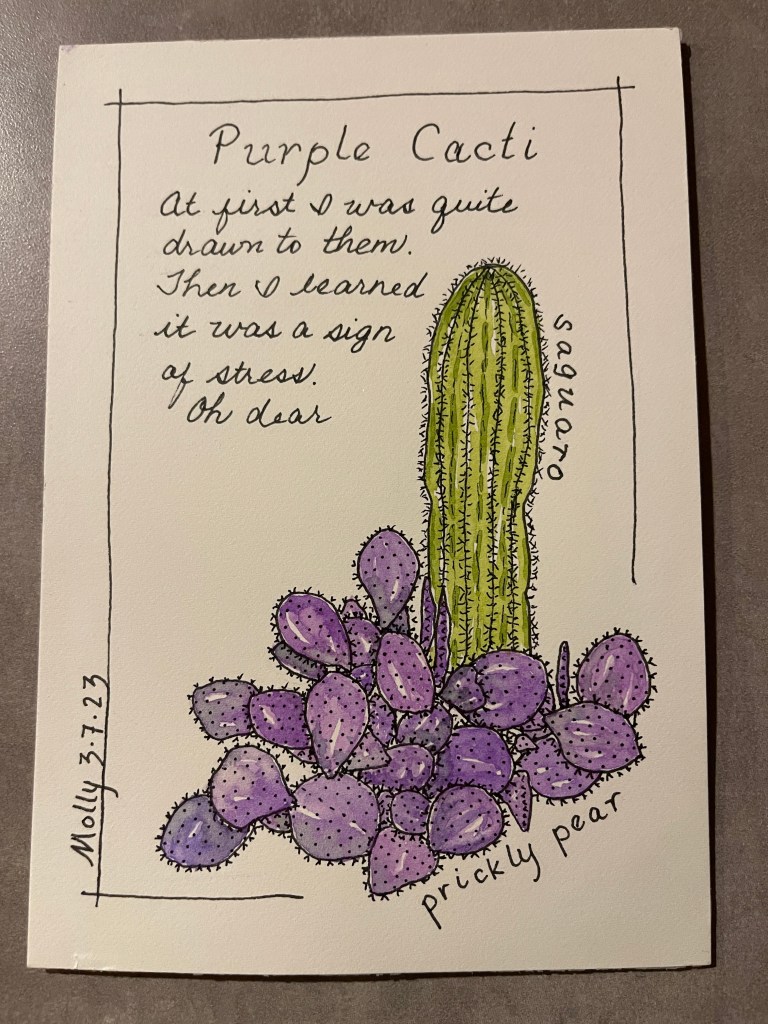 Purple Cacti
At first I was quite
drawn to them.
Then I learned
it was a sign
of stress.
Oh dear
saguaro
prickly pear
Molly 3.7.23